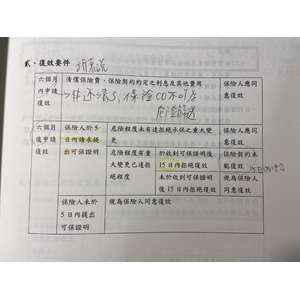 貳、復效要件
六個月內申請復效
清償保險費、保險契約約定之利息及其他費用
保險人應同意復效
六個月後申請復效
保險人於5日內請未提出可保證明
危險程度未有達拒絕承保之重大變更
保險人應同意復效
危險程度有重大變更已達拒絕程度
於收到可保證明後15日內拒絕復效
保險契約未能復效
未於收到可保證明後15日內拒絕復效
視為保險人同意復效
保險人未於5日內提出可保證明
視為保險人同意復效